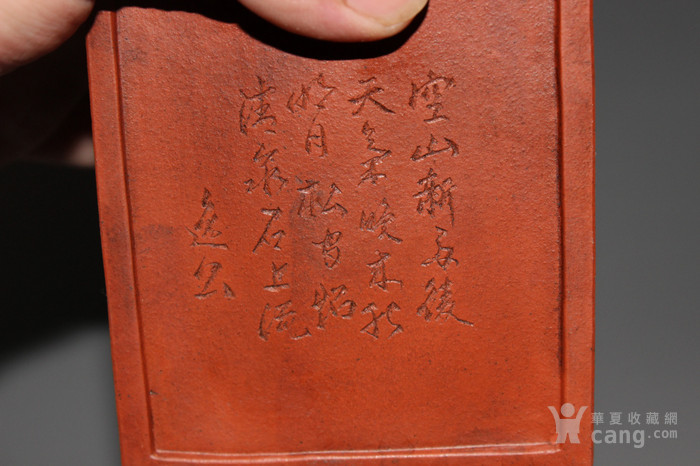 空山新雨後
天氣晚來秋
明月松間照
清泉石上流
逸公
華夏收藏網
cang.com